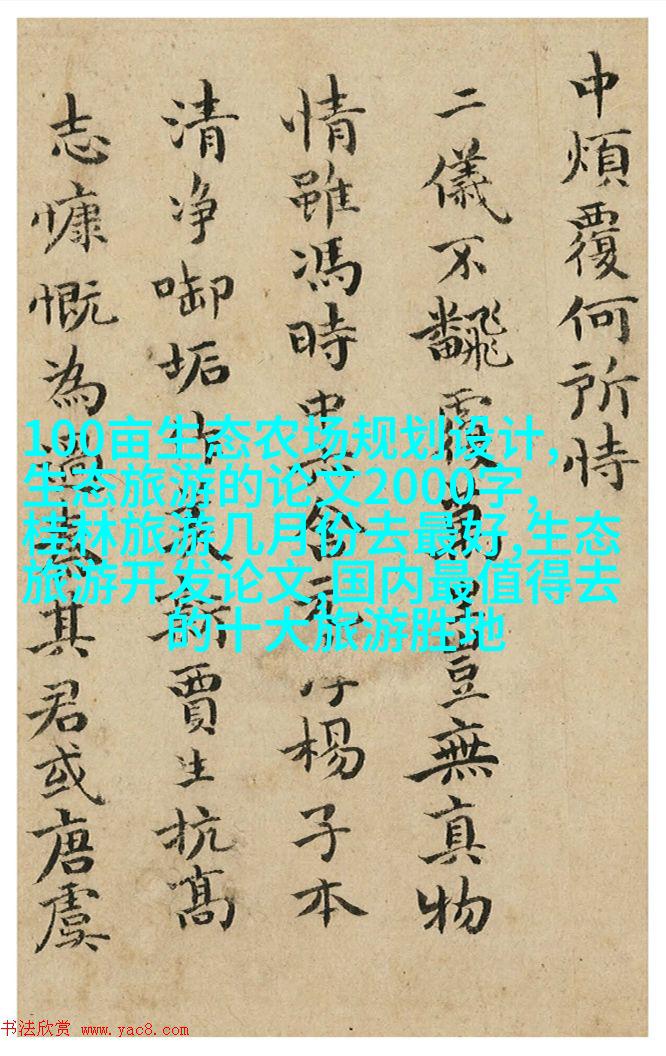 中煩覆何所恃
二儀不飜覆萬豈無真物
情雖馮時楊子本
清净啣垢賈生抗高
志慷慨為其君或唐虞
100亩生态农场规划设计,
生态旅游的论文2000字,
桂林旅游几月份去最好,生态
旅游开发论文,国内最值得去
的十大旅游胜地
书法欣赏 www.yac8.com